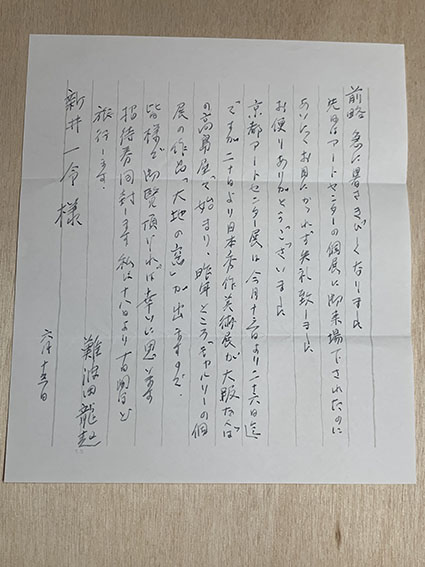 前略 急に暑さきびしくなりました
先日はアートセンターの個展に御来場下されたのに
あいにくお目にかゝれず失礼致しました
お便りありがとうございました
京都アートセンター展は今月十三日より二十六日迄
ですが二十日より日本秀作美術展が大阪なんば
の高島屋で始まり、昨年ところギャルリーの個
展の作品「大地の窓」が出ますので
皆様で御覧頂ければ幸いに思います
招待券同封します 私は十八日より
旅行します。
六月十五日
難波田龍起
新井一令様